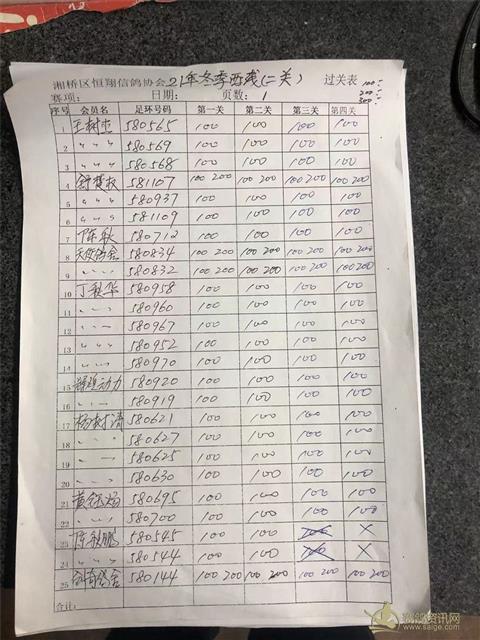 湘桥区恒翔信鸽协会21年冬季西线(二关) 过关表 100:
赛项: 日期: 页数: 1 200:
300:
序号 会员名 足环号码 第一关 第二关 第三关 第四关
1 王树生 580565 100 100 100 100
2 〃 〃 〃 580569 100 100 100 100
3 〃 〃 〃 580568 100 100 100 100
4 581107 100 200 100 200 100 200 100 200
5 〃 〃 〃 580937 100 100 100 100
6 〃 〃 〃 581109 100 100 100 100
7 陈秋 580712 100 100 100 100
8 580834 100 200 100 200 100 200 100 200
9 〃 〃 〃 580832 100 200 100 200 100 200 100 200
10 丁秋华 580958 100 100 100 100
11 〃 〃 〃 580960 100 100 100 100
12 〃 〃 〃 580967 100 100 100 100
13 〃 〃 〃 580952 100 100 100 100
14 〃 〃 〃 580970 100 100 100 100
15 翱翔动力 580920 100 100 100 100
16 〃 〃 〃 580919 100 100 100 100
17 杨树清 580621 100 100 100 100
18 〃 〃 580627 100 100 100 100
19 〃 〃 580625 100 100 100 100
20 〃 〃 580630 100 100 100 100
21 黄钰炀 580695 100 100 100 100
22 〃 〃 〃 580700 100 100 100 100
23 陈秋鹏 580545 100 100 100 ×
24 〃 〃 〃 580544 100 100 100 ×
25 580144 100 200 100 200 100 200 100 200
合计:
赛鸽资讯网
www.saige.com